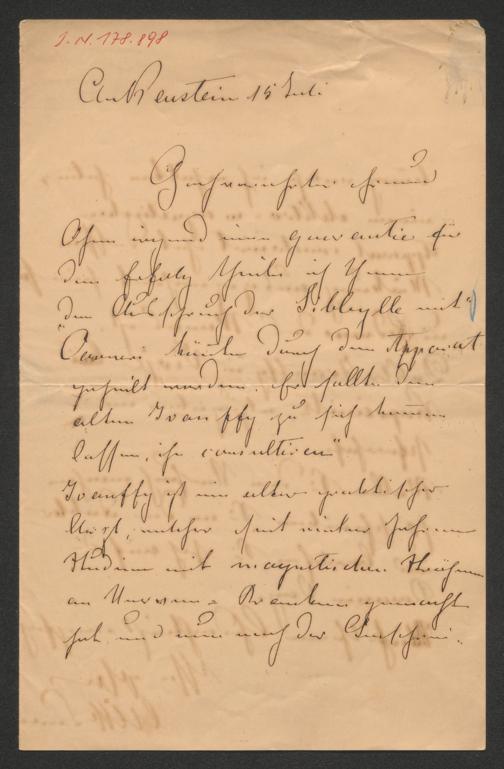 J.N. 178.898
Ankenstein 15 Juli
Hochverehrter Freund
Ohne irgend eine garantie für
den Erfolg theile ich Ihnen
den Ausspruch der Sibbylle mit
"Carneri könnte durch den Apparat
geheilt werden. Er sollte den
alten Ivanffy zu sich kommen
lassen, ihn consultiren"
Ivanffy ist ein alter praktischer
Arzt, welcher seit vielen Jahren
Studien mit magnetischen Strömen
an Nerven-Kranken gemacht
hat und nun nach der